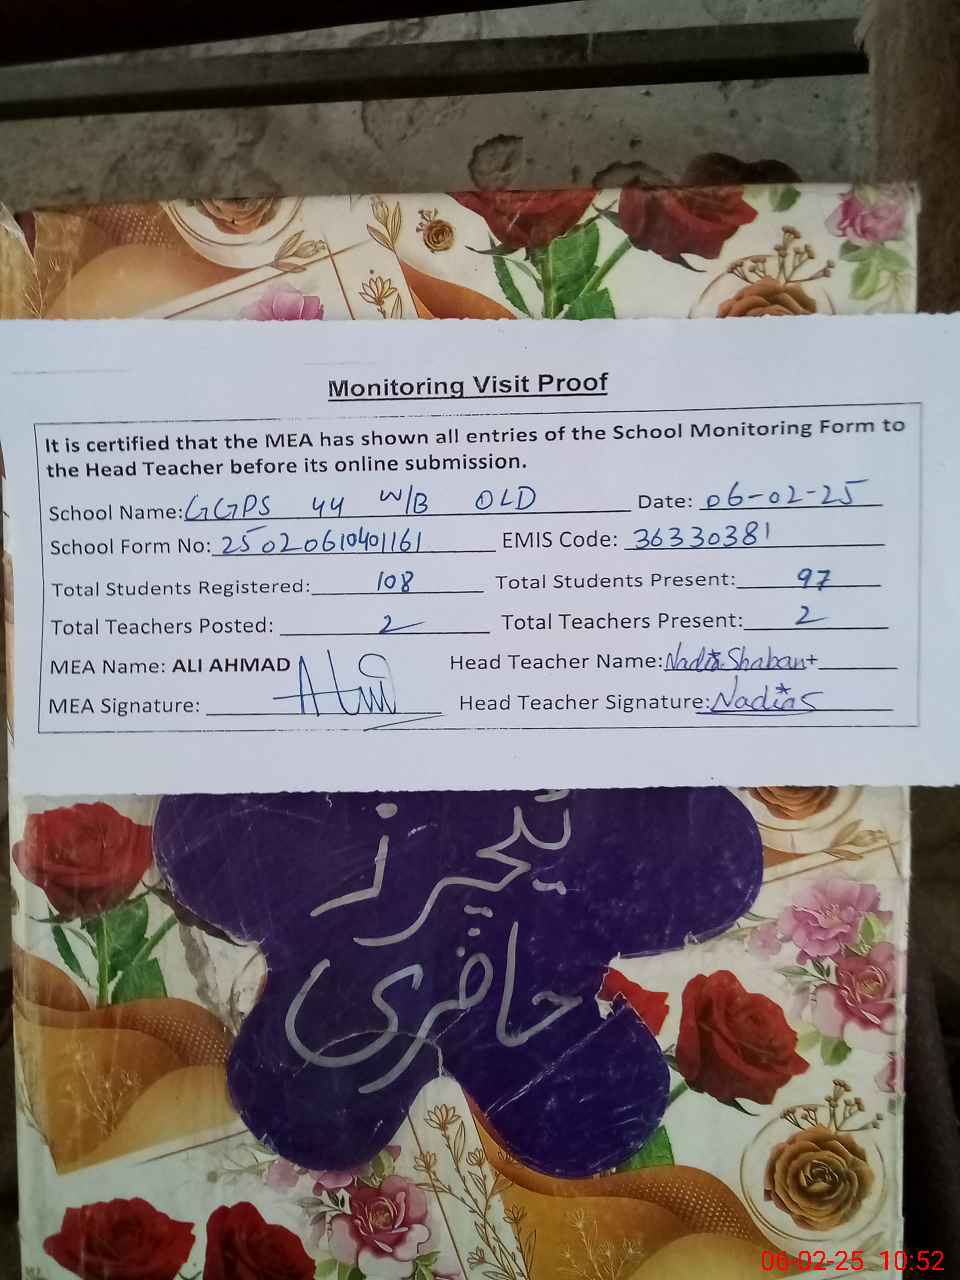 Monitoring Visit Proof
It is certified that the MEA has shown all entries of the School Monitoring Form to
the Head Teacher before its online submission.
School Name: GGPS 44 W/B OLD Date: 06-02-25
School Form No: 25020610401161 EMIS Code: 36330381
Total Students Registered: 108 Total Students Present: 97
Total Teachers Posted: 2 Total Teachers Present: 2
MEA Name: ALI AHMAD Head Teacher Name: Nadia Shaban
MEA Signature: Head Teacher Signature: Nadia S
ٹیچرز
حاضری
06-02-25 10:52